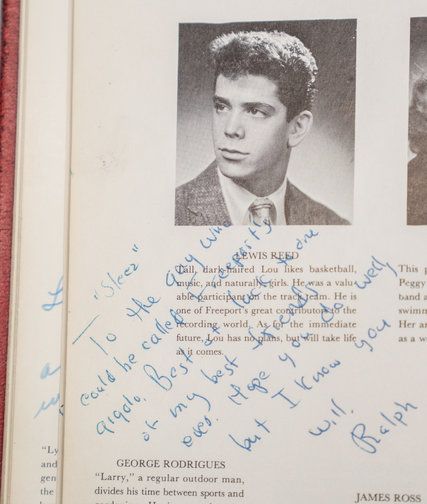 LEWIS REED
Tall, dark-haired Lou likes basketball,
music, and naturally, girls. He was a valu-
able participant on the track team. He is
one of Freeport's great contributors to the
recording world. As for the immediate
future, Lou has no plans, but will take life
as it comes.
"Sleez"
To the guy who
could be called Freeport's
gigolo. Best of luck to one
of my best friends
ever. Hope you do well
but I know you
will.
Ralph
This
Peggy
band a
swimm
Her
as a w
"Ly
and
gen
the
GEORGE RODRIGUES
"Larry," a regular outdoor man,
divides his time between sports and
JAMES ROSS